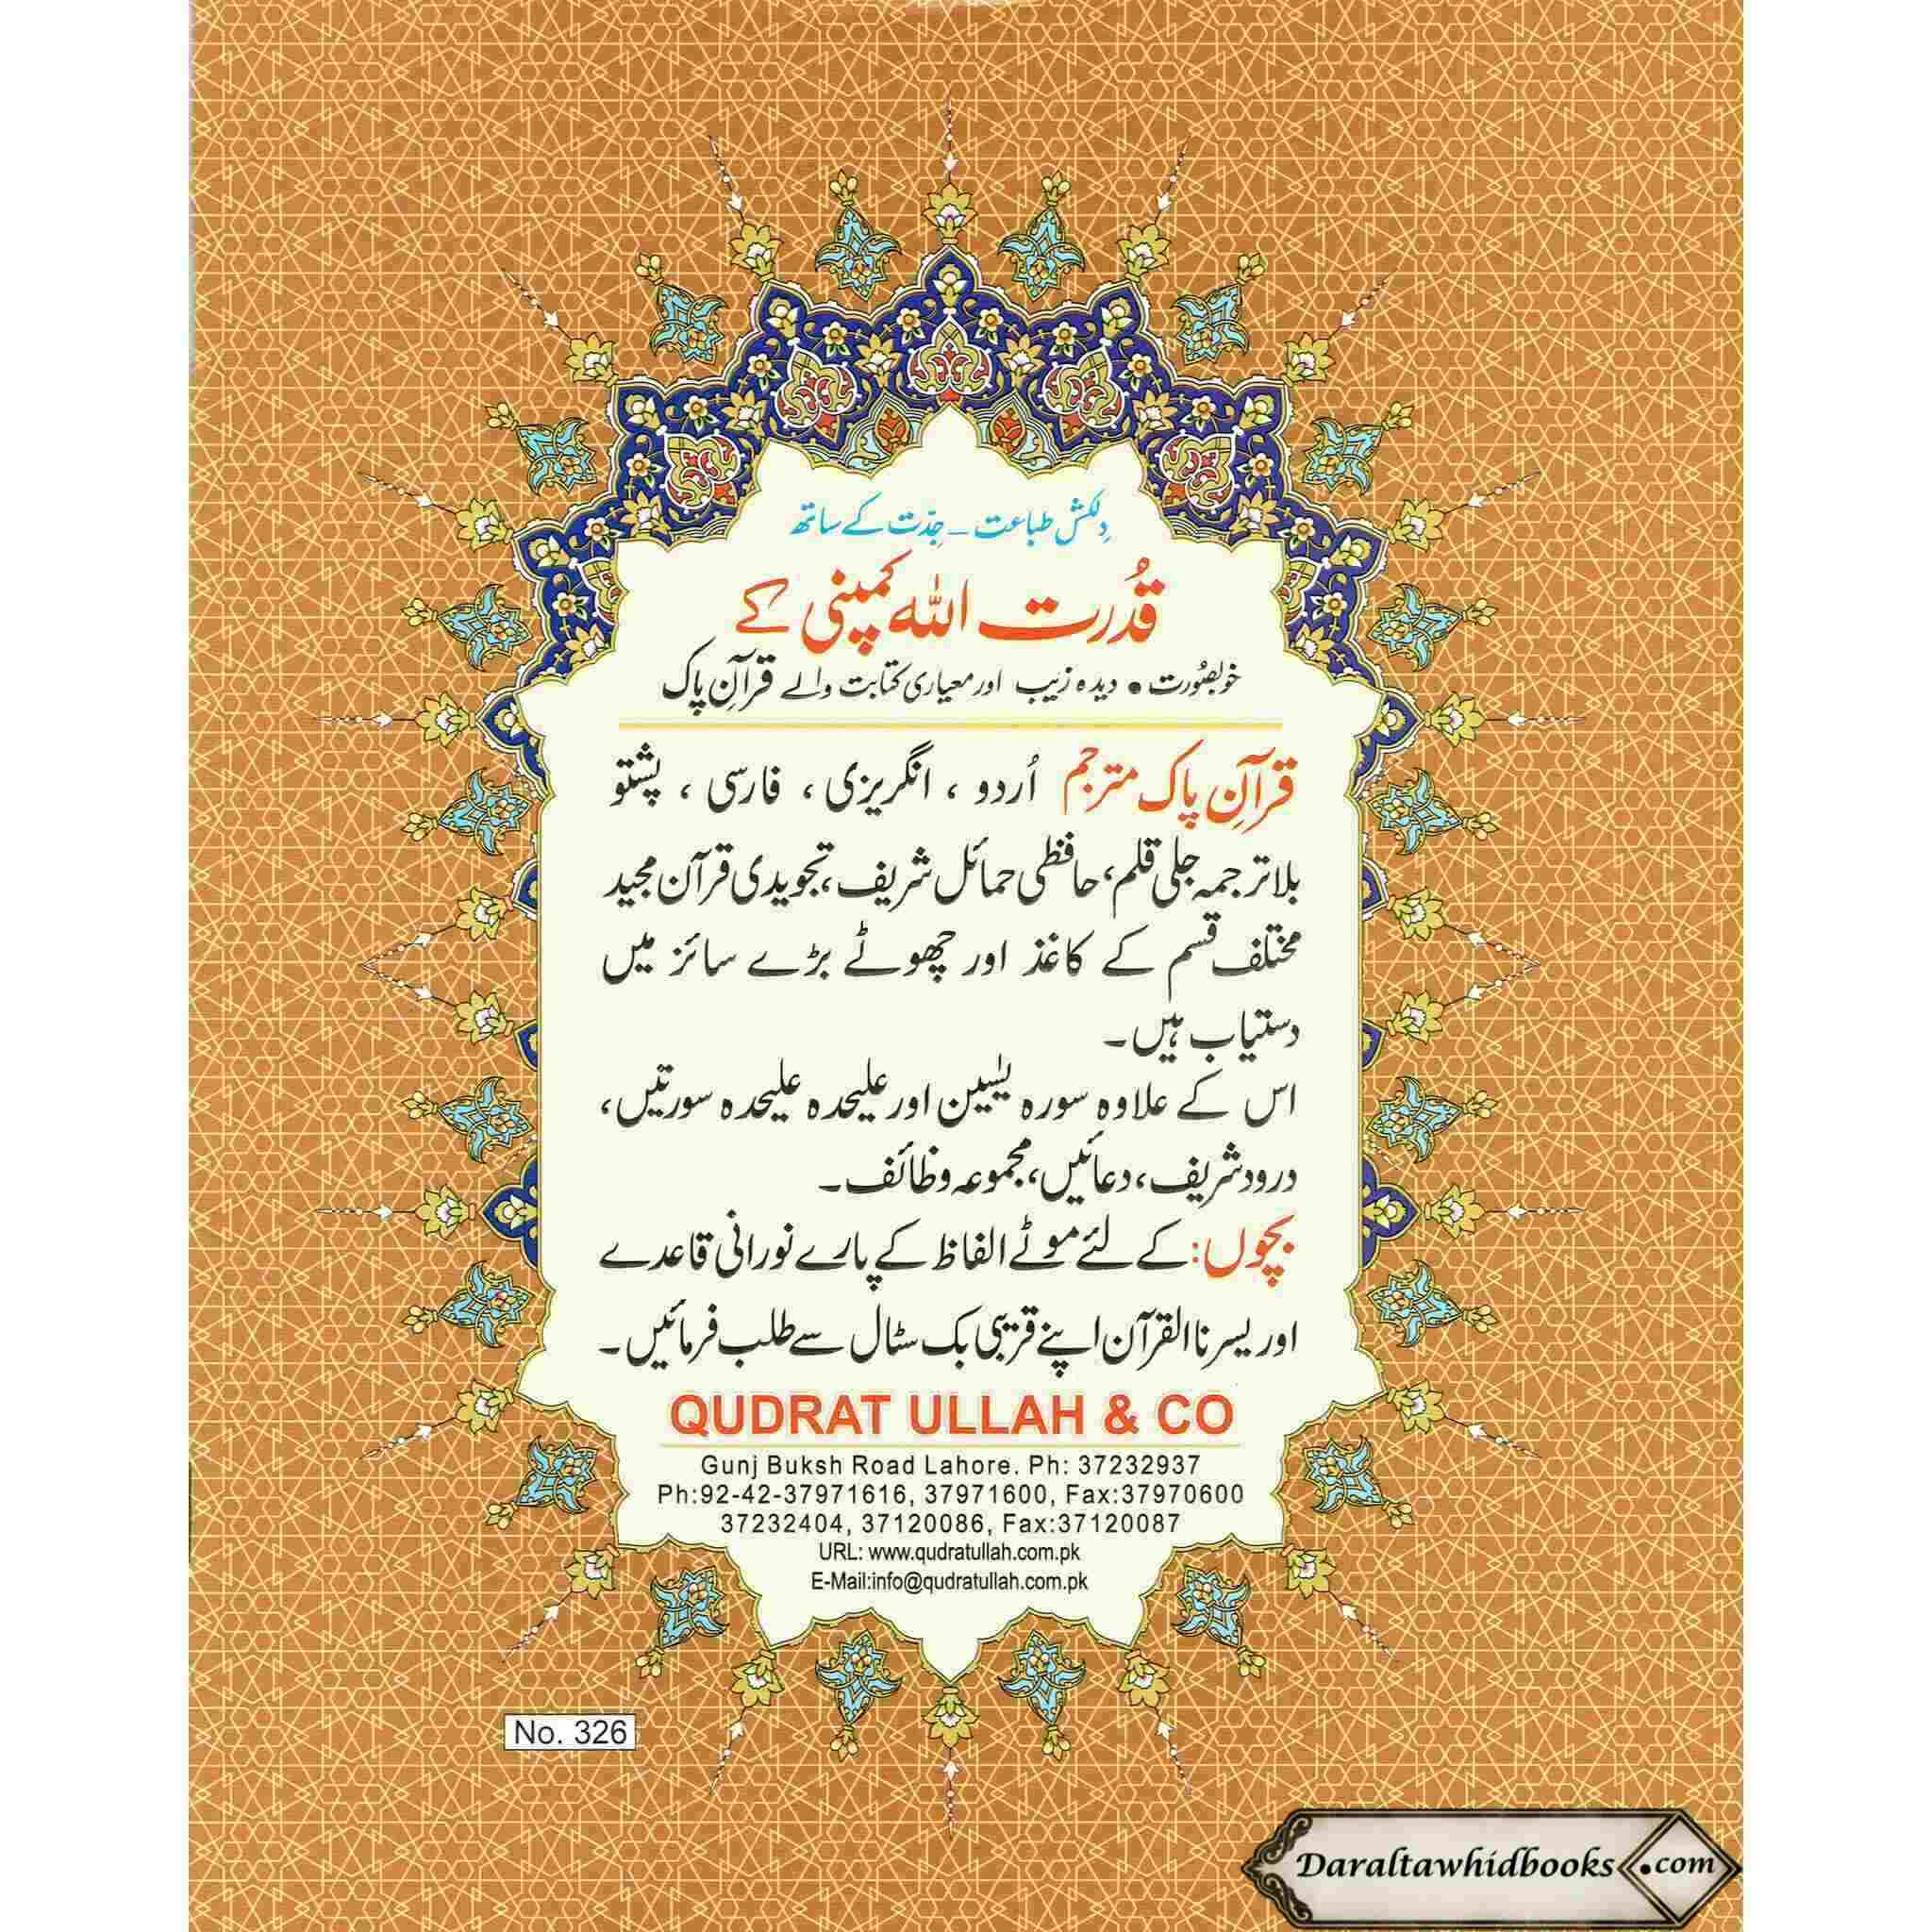 دِلکش طباعت ۔ جِدّت کے ساتھ
قُدرت اللہ کمپنی کے
خوبصُورت • دیدہ زیب اور معیاری کتابت والے قرآنِ پاک
قرآنِ پاک مترجم اُردو ، انگریزی ، فارسی ، پشتو
بلا ترجمہ جلی قلم، حافظی حمائل شریف، تجویدی قرآن مجید
مختلف قسم کے کاغذ اور چھوٹے بڑے سائز میں
دستیاب ہیں۔
اس کے علاوہ سورہ یٰسین اور علیحدہ علیحدہ سورتیں،
درود شریف، دعائیں، مجموعہ وظائف۔
بچوں: کے لئے موٹے الفاظ کے پارے نورانی قاعدے
اور یسرنا القرآن اپنے قریبی بک سٹال سے طلب فرمائیں۔
QUDRAT ULLAH & CO
Gunj Buksh Road Lahore. Ph: 37232937
Ph:92-42-37971616, 37971600, Fax:37970600
37232404, 37120086, Fax:37120087
URL: www.qudratullah.com.pk
E-Mail:info@qudratullah.com.pk
No. 326
Daraltawhidbooks.com